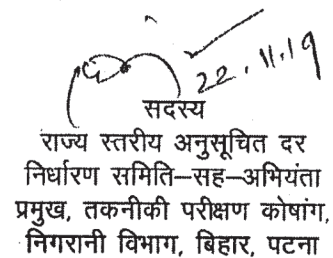 22.11.19
सदस्य
राज्य स्तरीय अनुसूचित दर
निर्धारण समिति–सह–अभियंता
प्रमुख, तकनीकी परीक्षण कोषांग,
निगरानी विभाग, बिहार, पटना